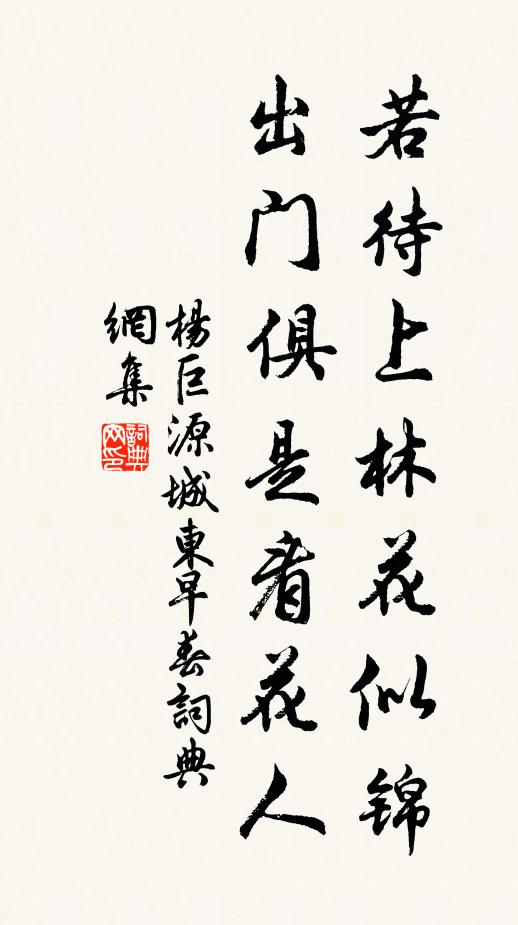 若待上林花似锦
出门俱是看花人
楊巨源城東早春詞典
網集
詞典
网印